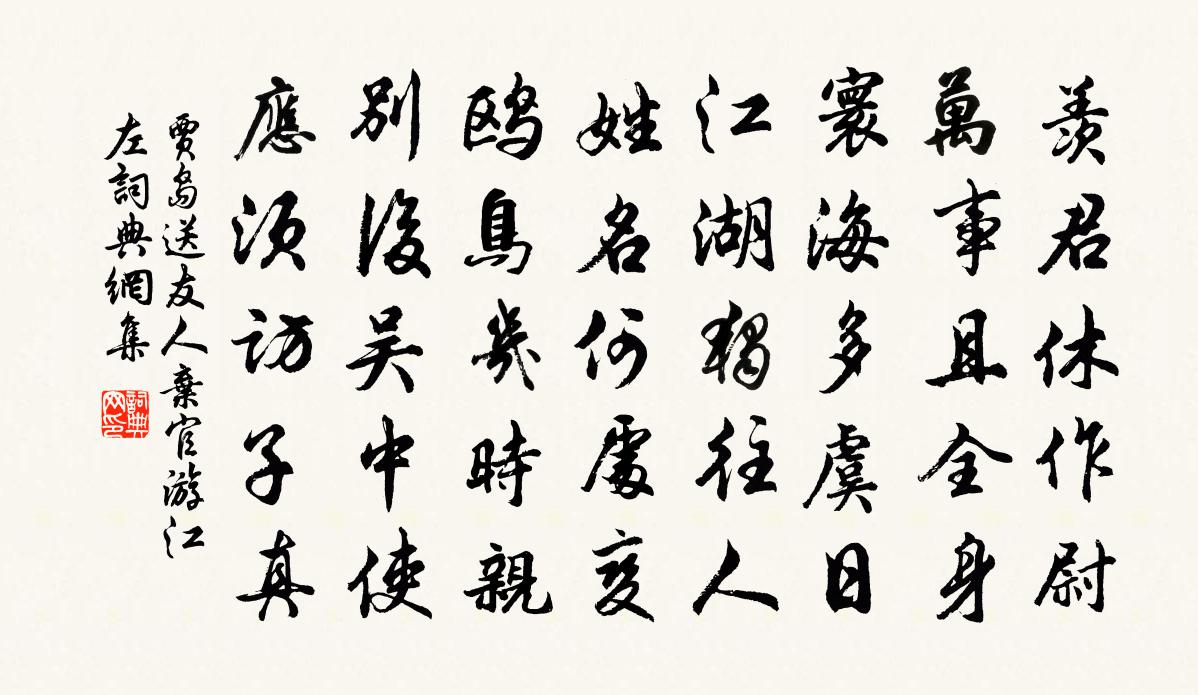 羨君休作尉
萬事且全身
寰海多虞日
江湖獨往人
姓名何處變
鷗鳥幾時親
別後吳中使
應須訪子真
賈島送友人棄官游江
左詞典網集
詞典网印